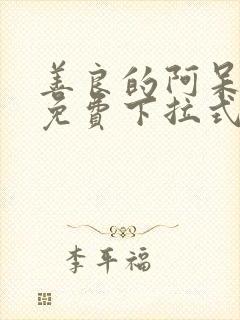 善良的阿呆
免費下拉式
李平福